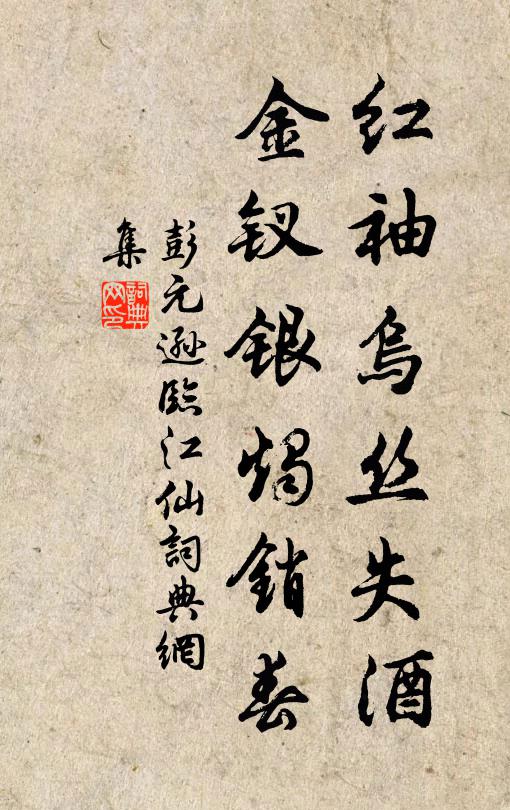 红袖乌丝失酒
金钗银烛销春
彭元逊临江仙詞典網
集
詞典
网印